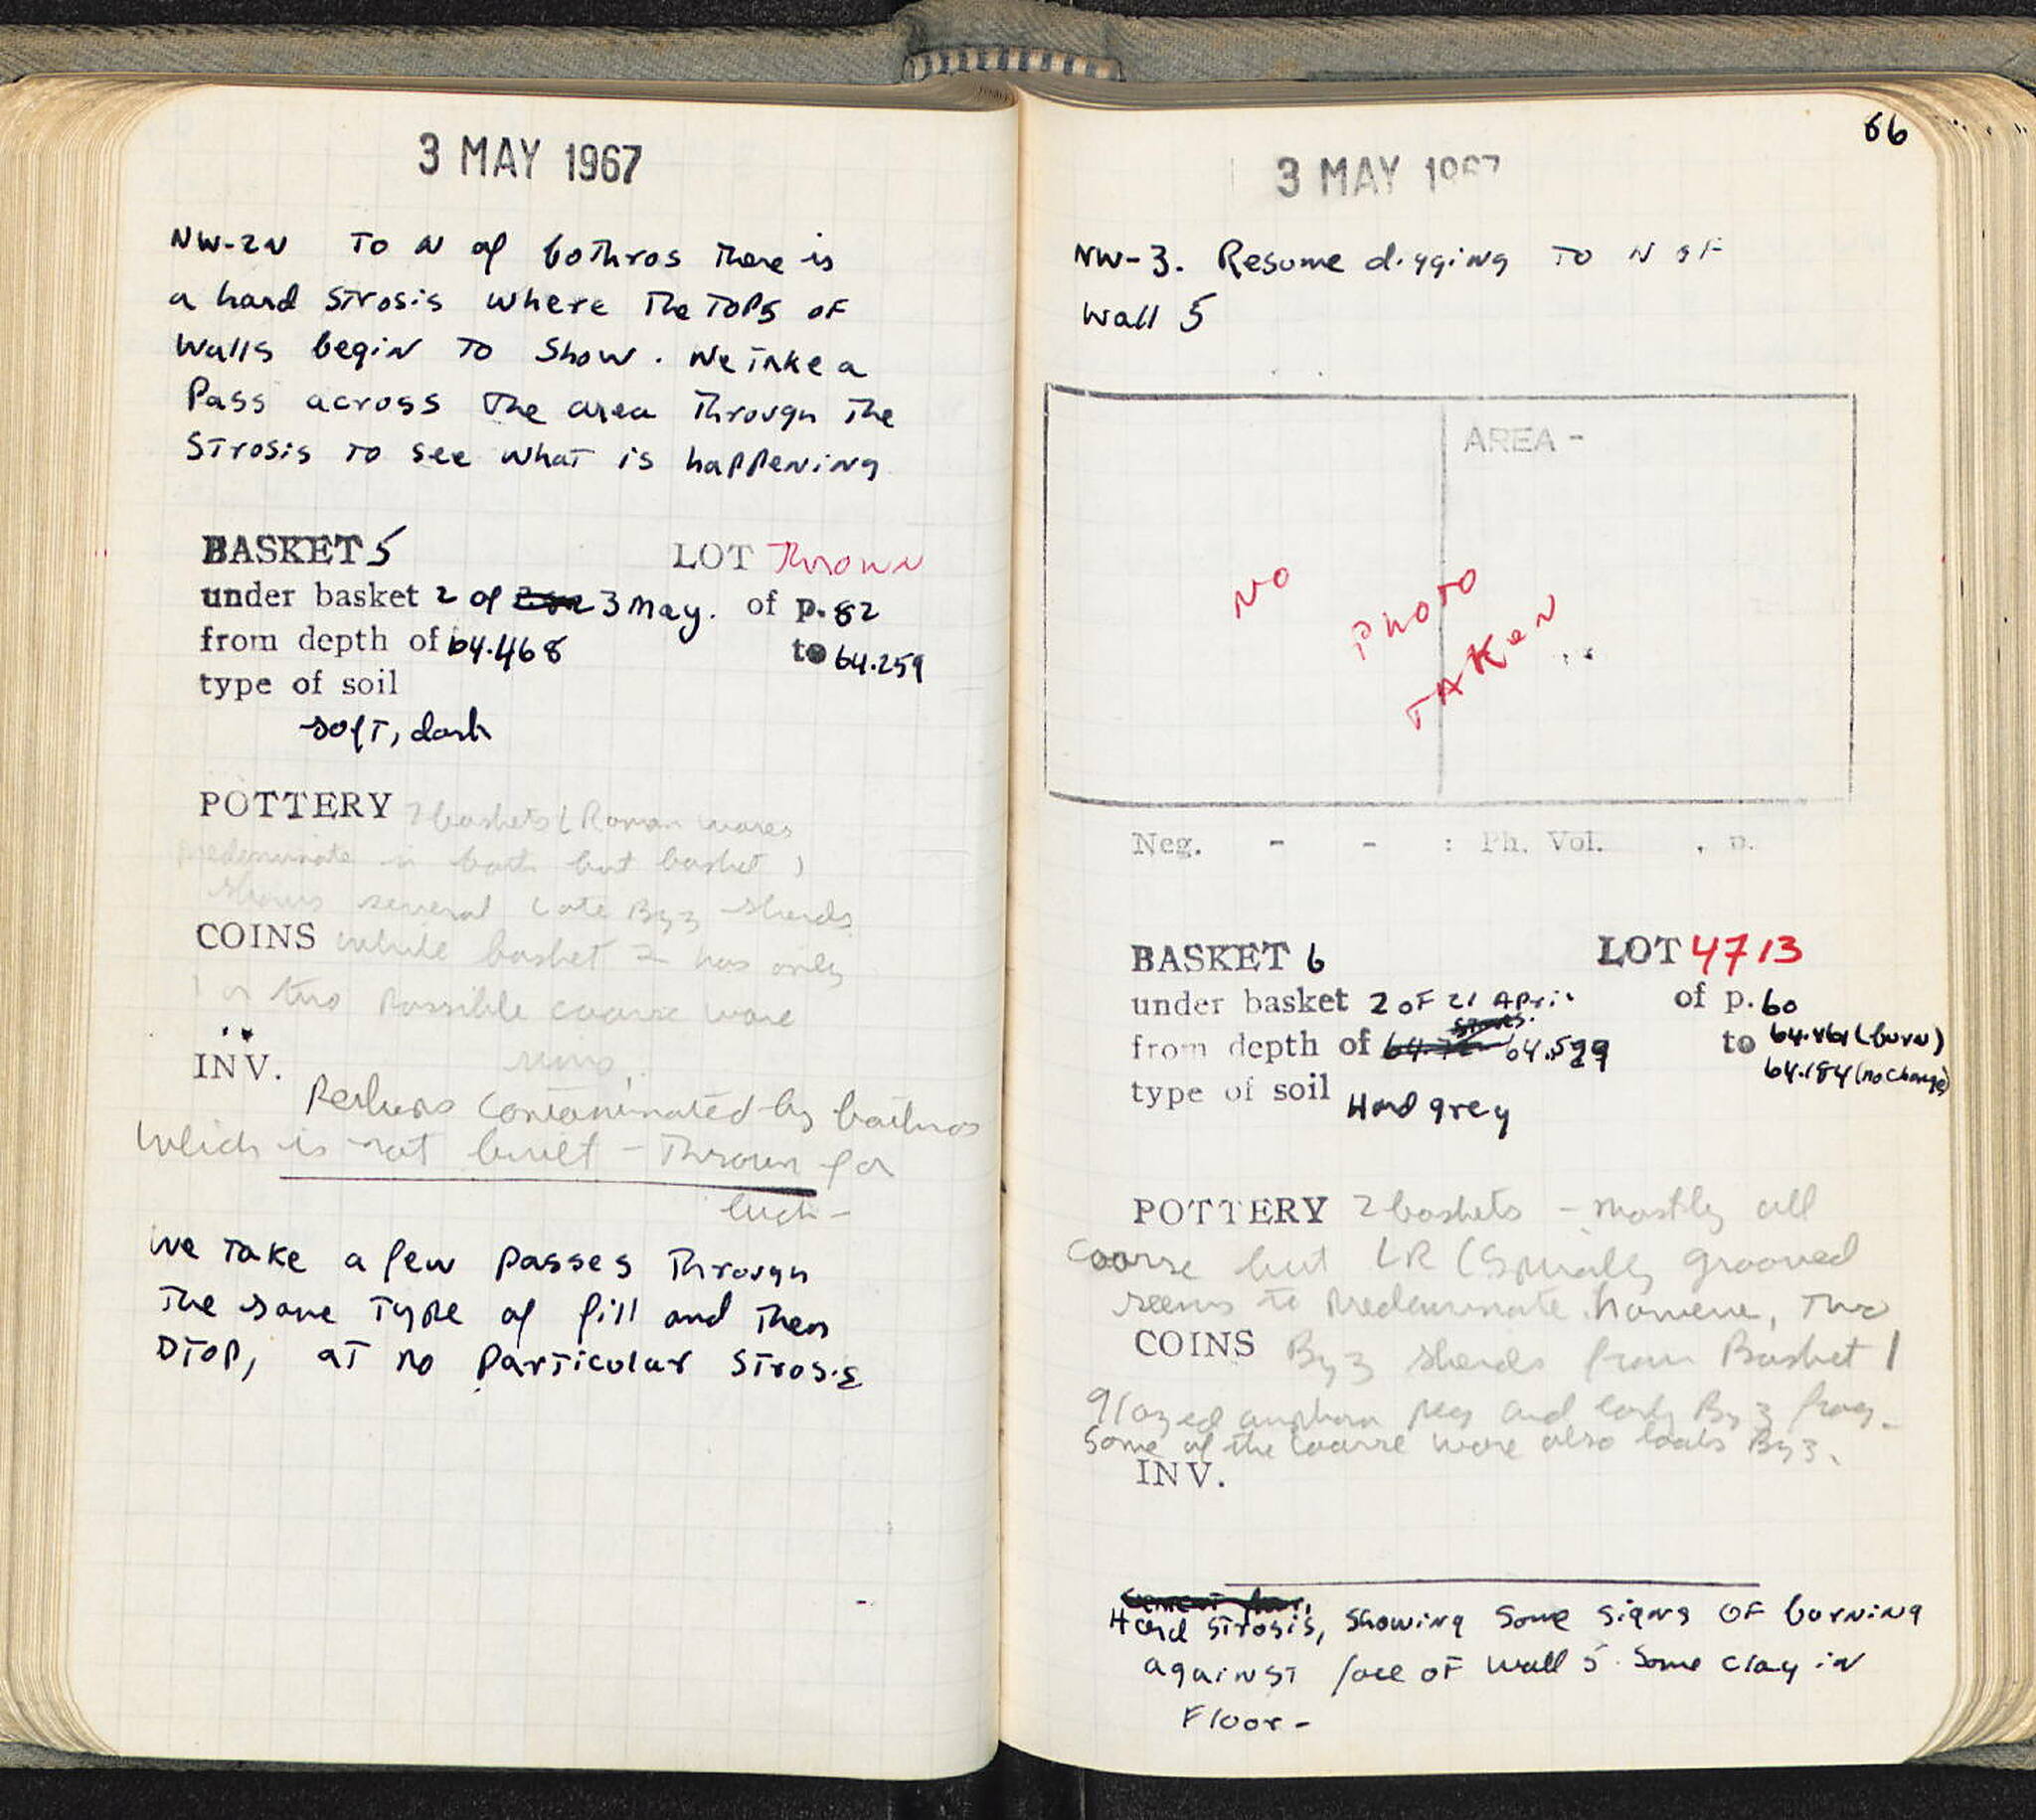 3 MAY 1967
NW-2N To N of bothros there is
a hard strosis where the tops of
walls begin to show. We take a
Pass across the area through the
strosis to see what is happening
BASKET 5 LOT Thrown
under basket 2 of 3 May. of p. 82
from depth of 64.468 to 64.259
type of soil
soft, dark
POTTERY 2 baskets (Roman wares
predominate in both but basket 1
shows several Late Byz sherds
COINS while basket 2 has only
1 or two possible coarse ware
rims.
INV.
Perhaps contaminated by bothros
which is not built - Thrown for
lack -
We take a few passes through
the same type of fill and then
stop, at no particular strosis
66
3 MAY 1967
NW-3. Resume digging to N of
Wall 5
AREA -
NO
PHOTO
TAKEN
Neg. - - : Ph. Vol. , p.
BASKET 6 LOT 4713
under basket 2 of 21 April of p. 60
from depth of 64.599 to 64.461 (burn)
64.184 (no change)
type of soil Hard grey
POTTERY 2 baskets - mostly all
coarse but LR (Spirally grooved
seems to predominate. however, two
COINS Byz sherds from Basket 1
glazed amphora peg and early Byz frag.
Some of the coarse ware also looks Byz.
INV.
Hard strosis, showing some signs of burning
against face of wall 5. Some clay in
Floor -